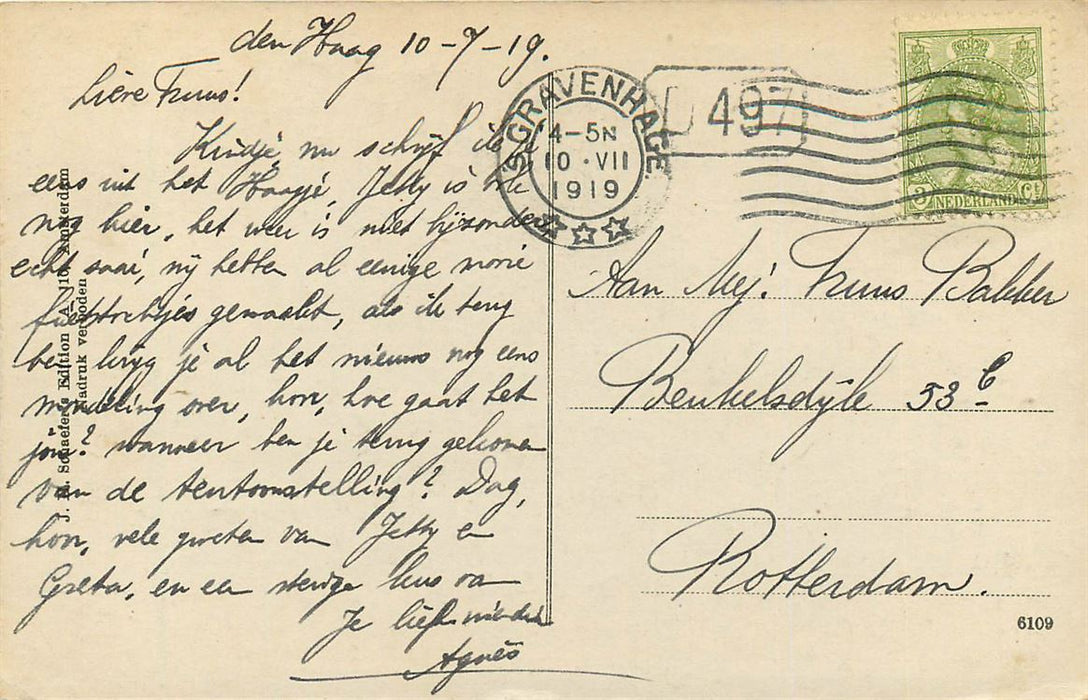 den Haag 10-7-19.
Lieve Truus!
Kindje, nu schrijf ik je
eens uit het Haagje, Jetty is ook
nog hier, het weer is niet bijzonder
echt saai, wij hebben al eenige mooie
fietstochtjes gemaakt, als ik terug
ben krijg je al het nieuws nog eens
mondeling over, hon, hoe gaat het
jou? wanneer ben je terug gekomen
van de tentoonstelling? Dag,
hon, vele groeten van Jetty en
Greta, en een stevige kus van
Je liefh. vriendin
Agnès
J. H. Schaefer's Edition A'dam Amsterdam
Nadruk verboden
'S GRAVENHAGE
4-5N
10 · VII
1919
497
3 Ct
NEDERLAND
Aan Mej. Truus Bakker
Beukelsdijk 53 c
Rotterdam.
6109